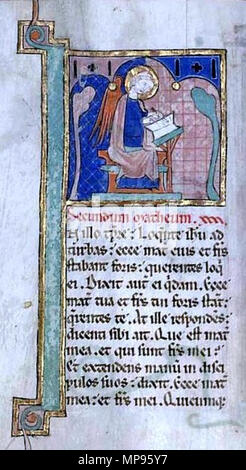 Secundum matheum. xxxi
In illo tpre: Loqnte ihu ad
turbas: ecce mat eius et frs
stabant foris: querentes loq
ei. Dixit aut ei qdam. Ecce
mat tua et frs tui foris stat:
querentes te. At ille respondes
dicenti sibi ait. Que est mat
mea. et qui sunt frs mei:
Et extendens manu in disci
pulos suos: dixit. Ecce mat
mea: et frs mei. Quicunq
alamy
Image ID: MP95Y7
www.alamy.com